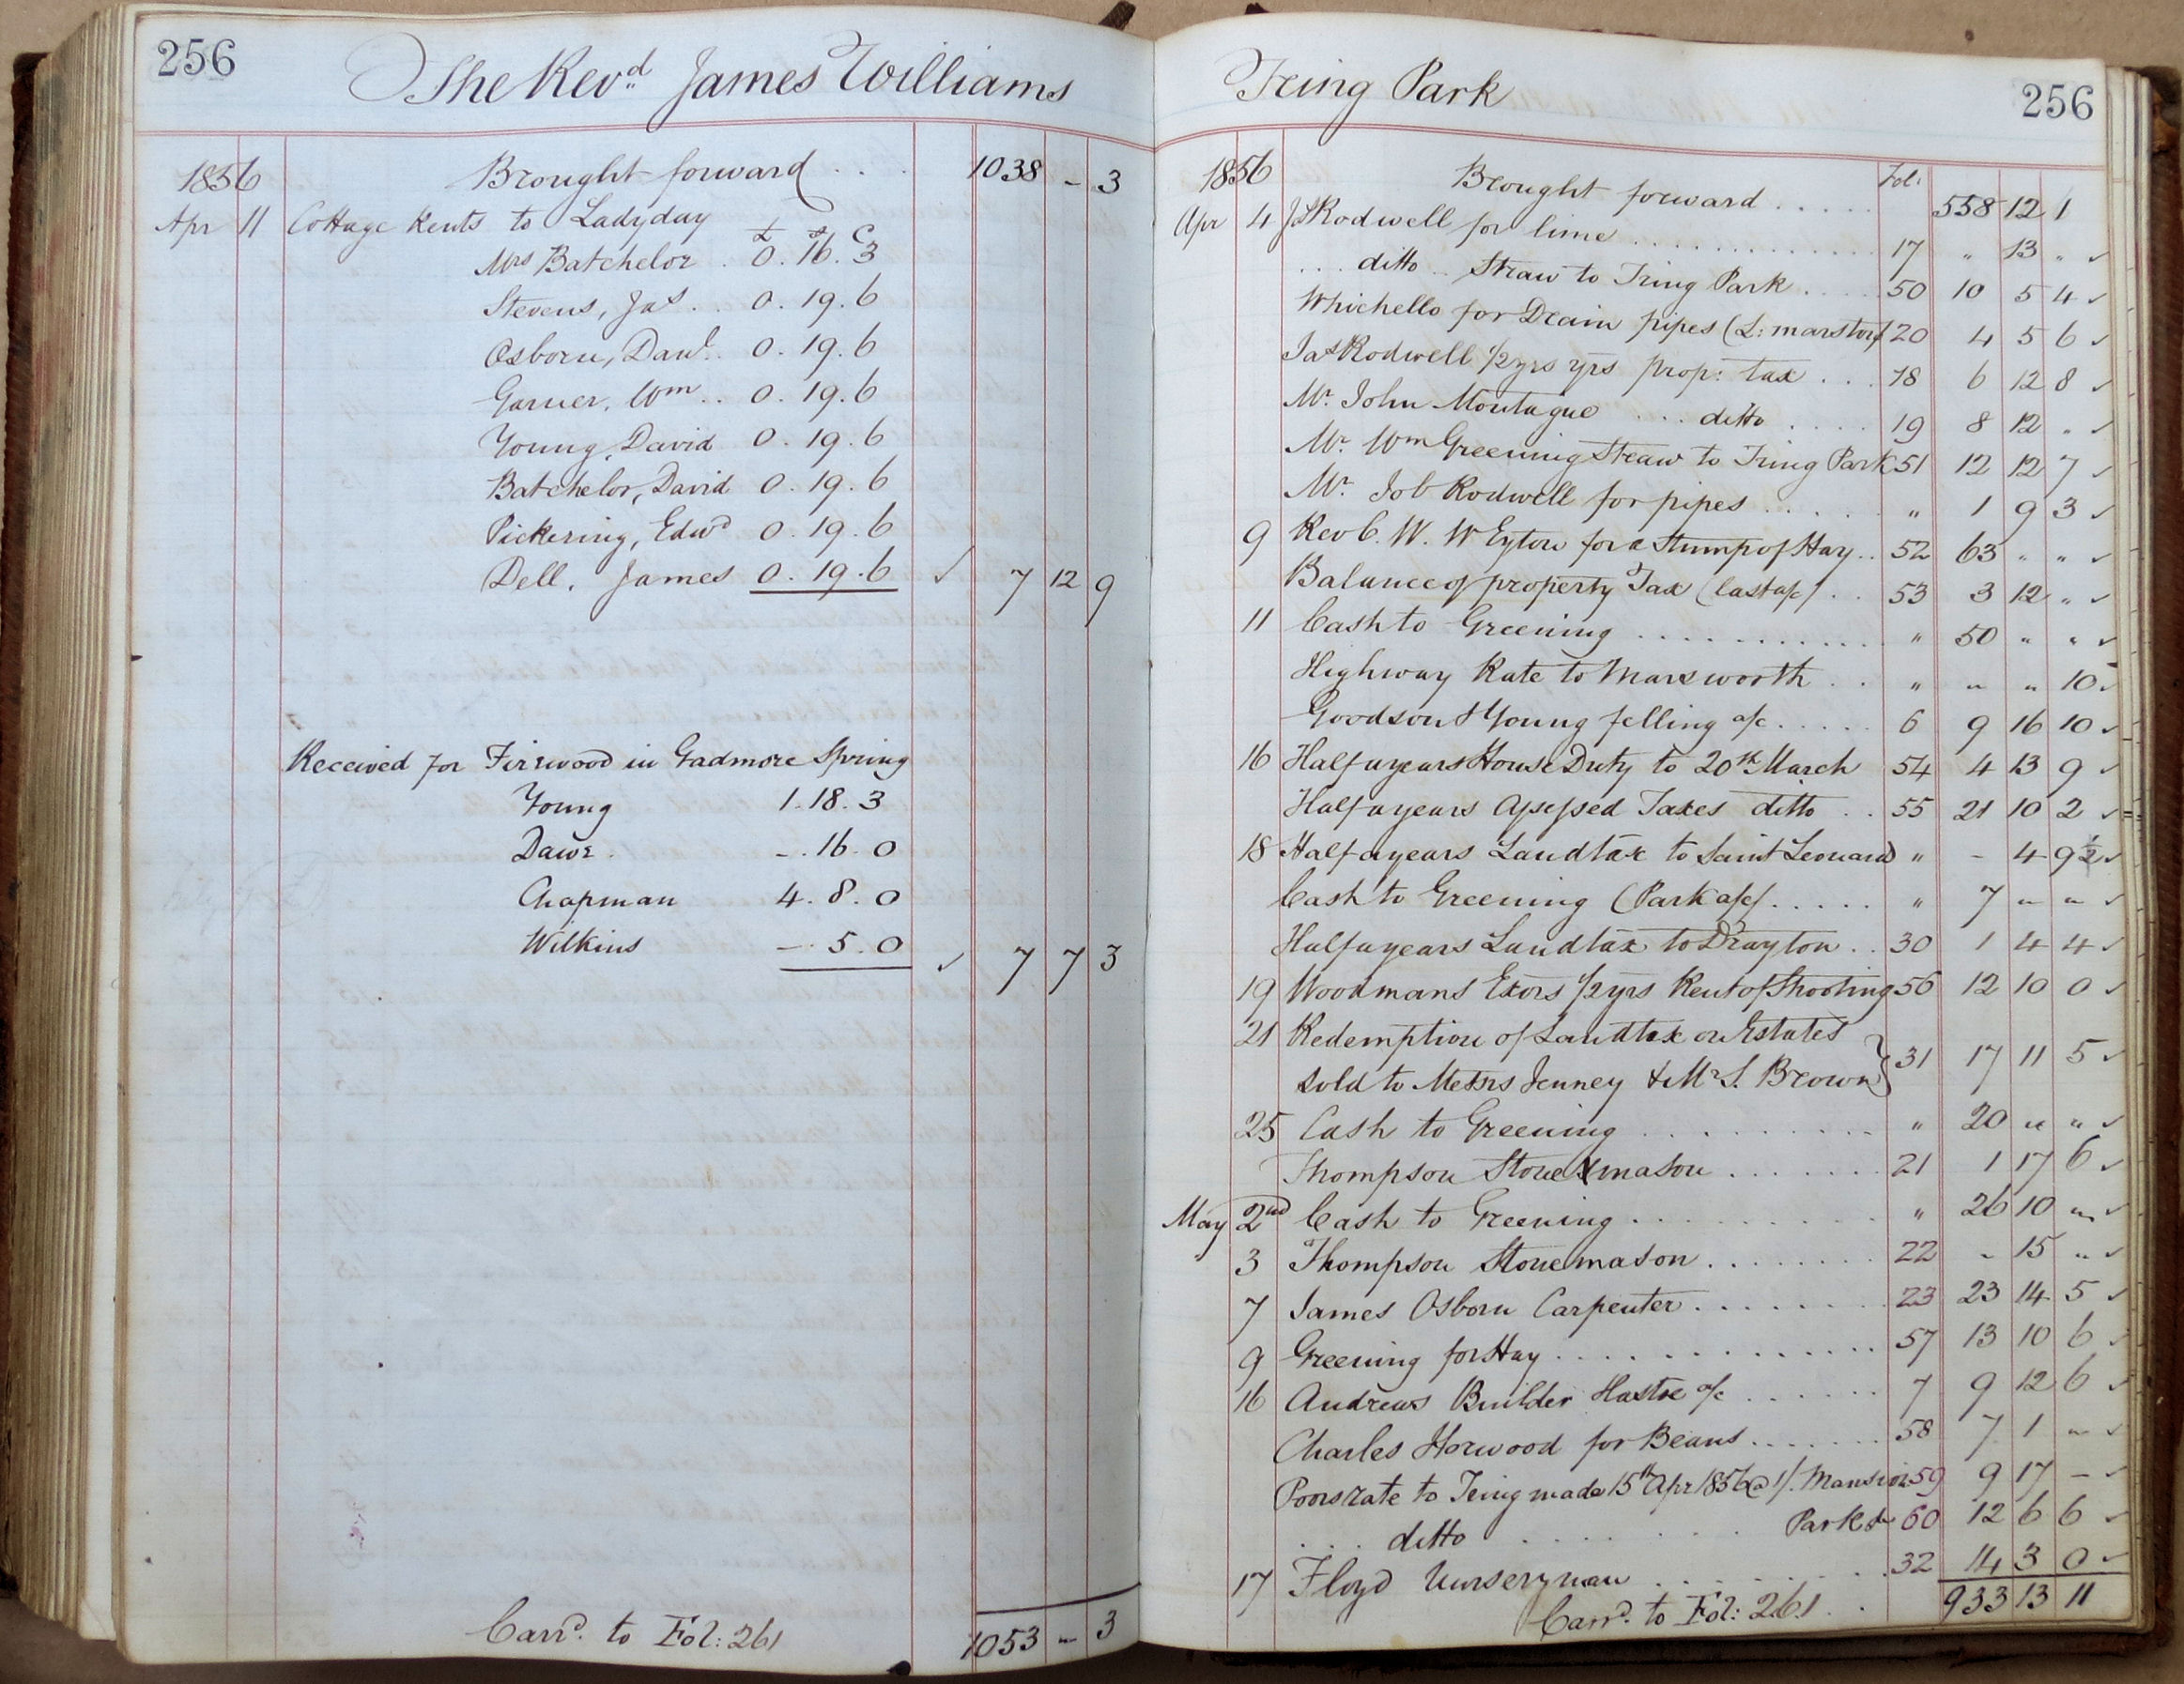 256
The Revd James Williams
1856 Brought forward . . . 1038 - 3
Apr 11 Cottage Rents to Ladyday
£ s d
Mrs Batchelor . 0 . 16 . 3
Stevens, Jas . . 0 . 19 . 6
Osborn, Danl . . 0 . 19 . 6
Garner, Wm . . 0 . 19 . 6
Young, David 0 . 19 . 6
Batchelor, David 0 . 19 . 6
Pickering, Edwd 0 . 19 . 6
Dell, James 0 . 19 . 6 ✓ 7 12 9
Received for Firewood in Gadmore Spring
Young 1 . 18 . 3
Dawe . - . 16 . 0
Chapman 4 . 8 . 0
Wilkins - . 5 . 0 ✓ 7 7 3
Carrd. to Fol: 261 1053 - 3
Tring Park
256
1856 Brought forward . . . . . Fol: 558 12 1
Apr 4 Js Rodwell for lime . . . . . . . . 17 " 13 " ✓
. . . ditto . . Straw to Tring Park . . . 50 10 5 4 ✓
Whichello for Drain pipes (L: marston) 20 4 5 6 ✓
Jas Rodwell 1/2 yrs yrs prop: tax . . . 18 6 12 8 ✓
Mr. John Montague . . . ditto . . . . 19 8 12 " ✓
Mr. Wm Greening Straw to Tring Park 51 12 12 7 ✓
Mr. Job Rodwell for pipes . . . . . " 1 9 3 ✓
9 Rev C. W. W Eyton for a Stump of Hay . . 52 63 " " ✓
Balance of property Tax (last a/c) . . 53 3 12 " ✓
11 Cash to Greening . . . . . . . . . . " 50 " " ✓
Highway Rate to Marsworth . . " " " 10 ✓
Goodson & Young felling a/c . . . . . 6 9 16 10 ✓
16 Half a years House Duty to 20th March 54 4 13 9 ✓
Half a years Assessed Taxes ditto . . 55 21 10 2 ✓
18 Half a years Landtax to Saint Leonard " - 4 9 1/2 ✓
Cash to Greening (Park a/c) . . . . . " 7 " " ✓
Half a years Landtax to Drayton . . 30 1 4 4 ✓
19 Woodmans Exors 1/2 yrs Rent of Shooting 56 12 10 0 ✓
21 Redemption of Landtax on Estates
sold to Messrs Jenney & Mr S. Brown } 31 17 11 5 ✓
25 Cash to Greening . . . . . . . . . " 20 " " ✓
Thompson Stone mason . . . . . . . 21 1 17 6 ✓
May 2nd Cash to Greening . . . . . . . . " 26 10 " ✓
3 Thompson Stonemason . . . . . . . . 22 " 15 " ✓
7 James Osborn Carpenter . . . . . . . . 23 23 14 5 ✓
9 Greening for Hay . . . . . . . . . . . . 57 13 10 6 ✓
16 Andrews Builder Hastoe a/c . . . . . . 7 9 12 6 ✓
Charles Horwood for Beans . . . . . . . 58 7 1 " ✓
Poorsrate to Tring made 15th Apr 1856 @ 1/. Mansion 59 9 17 - ✓
. . . ditto . . . . . . Park &c 60 12 6 6 ✓
17 Floyd Nurseryman . . . . . . . . 32 14 3 0 ✓
Carrd. to Fol: 261 . . 933 13 11